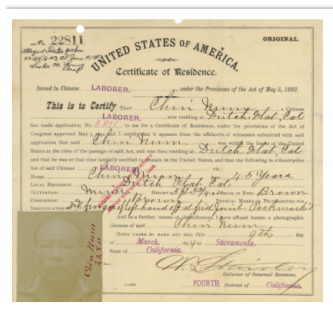 No. 22811
ORIGINAL.
UNITED STATES OF AMERICA.
Certificate of Residence.
Issued to Chinese LABORER, under the Provisions of the Act of May 5, 1892.
This is to Certify THAT Chin Mum
LABORER, now residing at Dutch Flat, Cal
has made application No. to me for a Certificate of Residence, under the provisions of the Act of
Congress approved May 5, 1892, and I certify that it appears from the affidavits of witnesses submitted with said
application that said Chin Mum was within the limits of the United
States at the time of the passage of said Act, and was then residing at Dutch Flat, Cal
and that he was at that time lawfully entitled to remain in the United States, and that the following is a descriptive
list of said Chinese LABORER viz.:
NAME: Chin Mum AGE: 45 Years
LOCAL RESIDENCE: Dutch Flat, Cal
OCCUPATION: Miner HEIGHT: COLOR OF EYES: Brown
COMPLEXION: Brown PHYSICAL MARKS OR PECULIARITIES FOR
IDENTIFICATION:
And as a further means of identification, I have affixed hereto a photographic
likeness of said Chin Mum
GIVEN UNDER MY HAND AND SEAL this 9th day
of March, 1894, Sacramento,
State of California.
Collector of Internal Revenue,
FOURTH District of California.
Chin Mum
22811